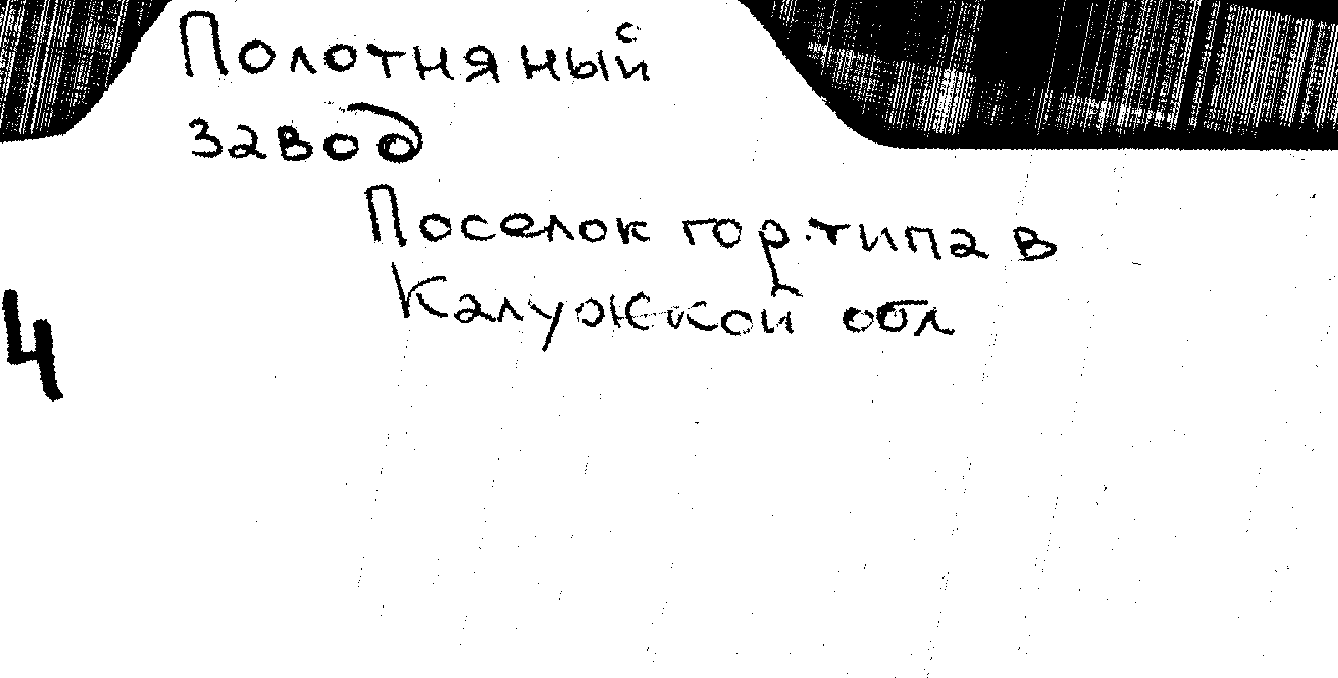 Полотняный
завод
Поселок гор. типа в
Калужской обл
4